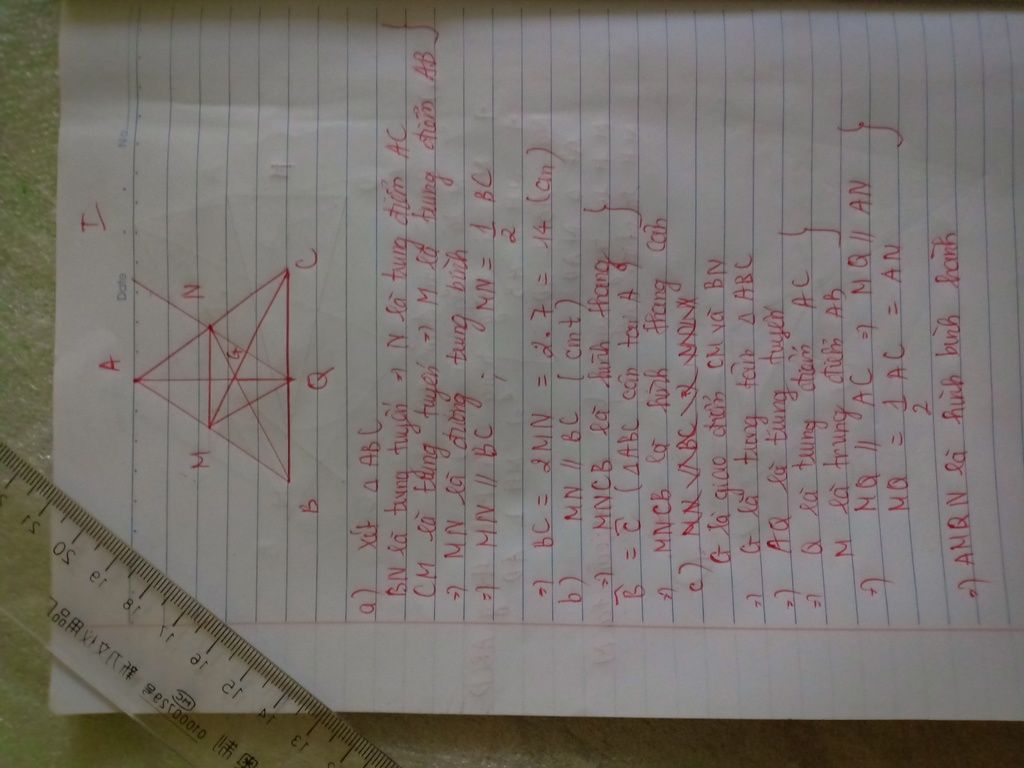 No.
Date
I
A
M
N
G
B
Q
C
a) Xét Δ ABC
BN là trung tuyến → N là trung điểm AC
CM là trung tuyến → M là trung điểm AB
=) MN là đường trung bình
=) MN // BC ; MN = 1/2 BC
=) BC = 2MN = 2.7 = 14 (cm)
b) MN // BC (cmt)
=) MNCB là hình thang
B = C (ΔABC cân tại A)
=) MNCB là hình thang cân
c)
G là giao điểm CM và BN
=) G là trọng tâm Δ ABC
=) AQ là trung tuyến
=) Q là trung điểm AC
M là trung điểm AB
=) MQ // AC => MQ // AN
MQ = 1/2 AC = AN
=) AMQN là hình bình hành
21 20 19 18 17 16 15 14 13